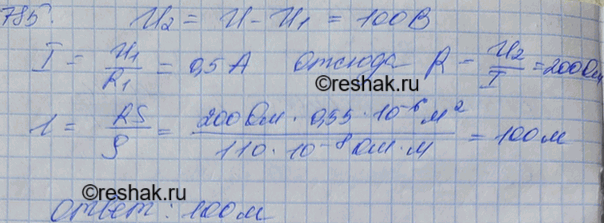 785. U₂ = U - U₁ = 100В
I = U₁/R₁ = 0,5 А отсюда R = U₂/I = 200 Ом
reshak.ru
l = RS/ρ = 200 Ом · 0,55 · 10⁻⁶ м²/110 · 10⁻⁸ Ом · м = 100 м
Ответ: 100 м
©reshak.ru